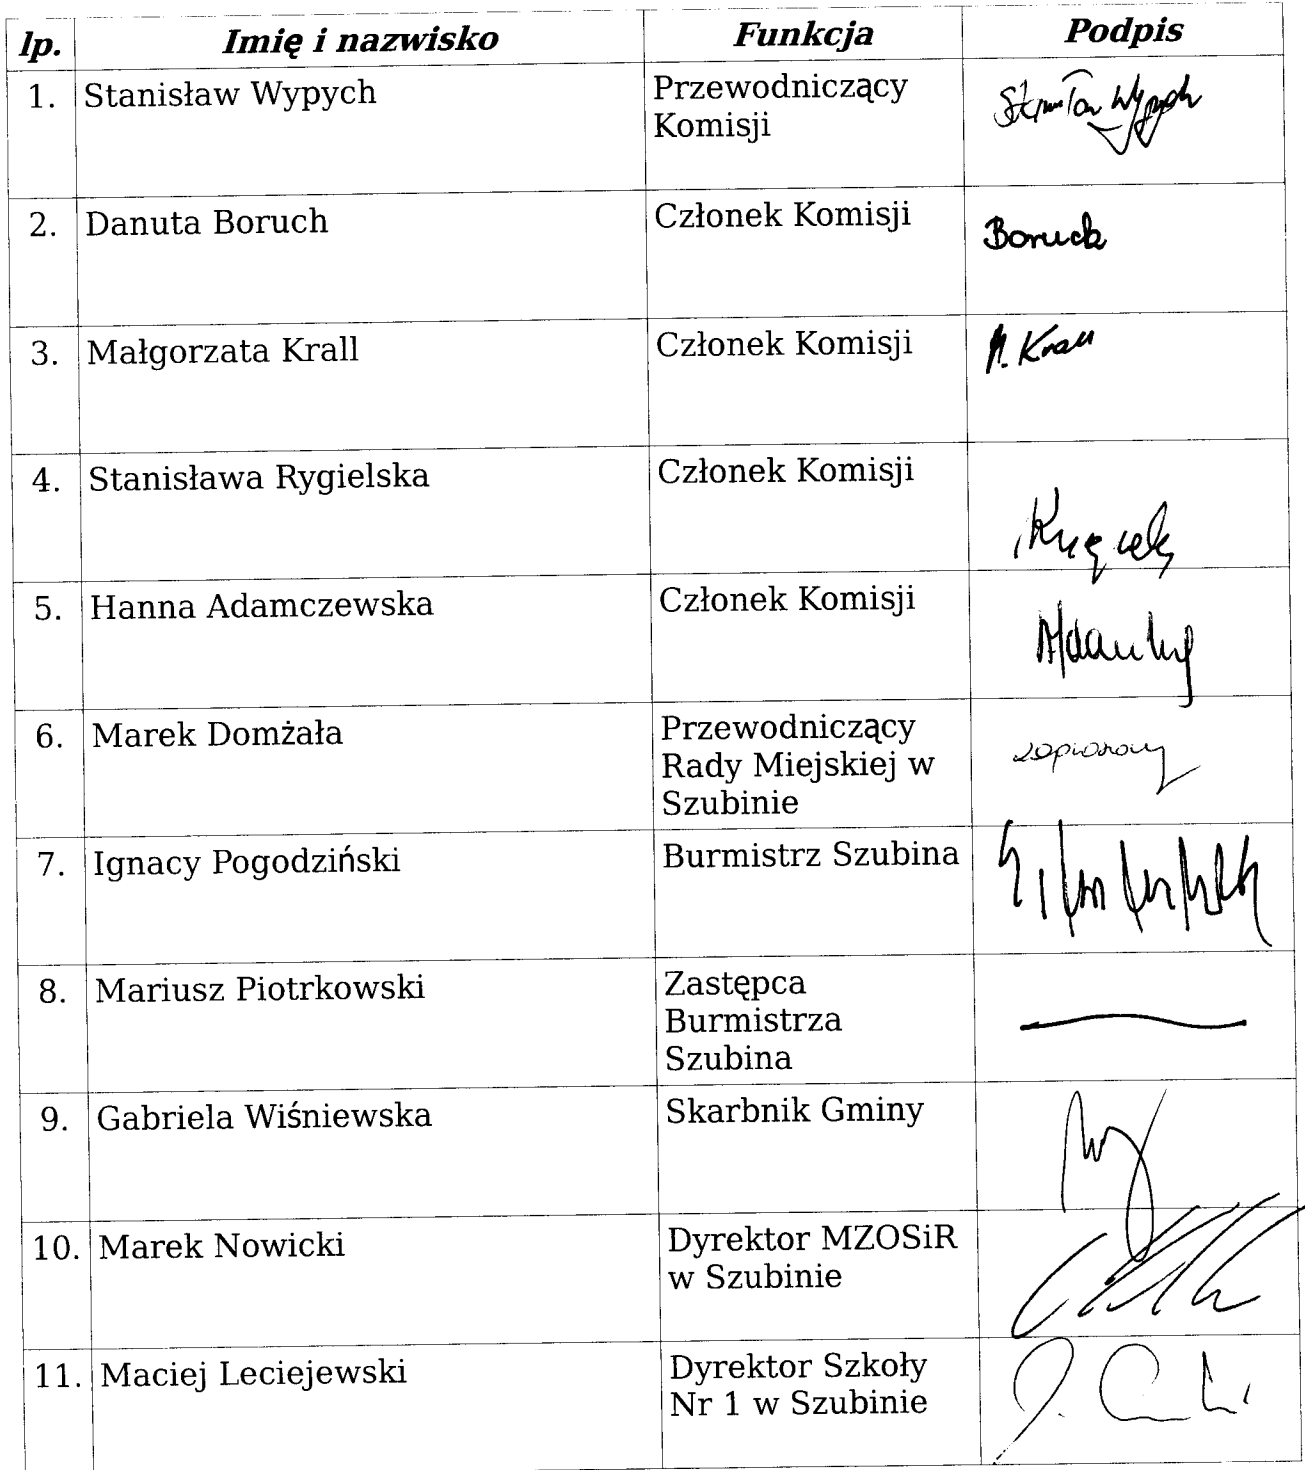 lp. Imię i nazwisko Funkcja Podpis
1. Stanisław Wypych Przewodniczący
Komisji
Stanisław Wypych
2. Danuta Boruch Członek Komisji
Boruch
3. Małgorzata Krall Członek Komisji M. Krall
4. Stanisława Rygielska Członek Komisji
5. Hanna Adamczewska Członek Komisji
6. Marek Domżała Przewodniczący
Rady Miejskiej w
Szubinie
7. Ignacy Pogodziński Burmistrz Szubina
8. Mariusz Piotrkowski Zastępca
Burmistrza
Szubina
9. Gabriela Wiśniewska Skarbnik Gminy
10. Marek Nowicki Dyrektor MZOSiR
w Szubinie
11. Maciej Leciejewski Dyrektor Szkoły
Nr 1 w Szubinie